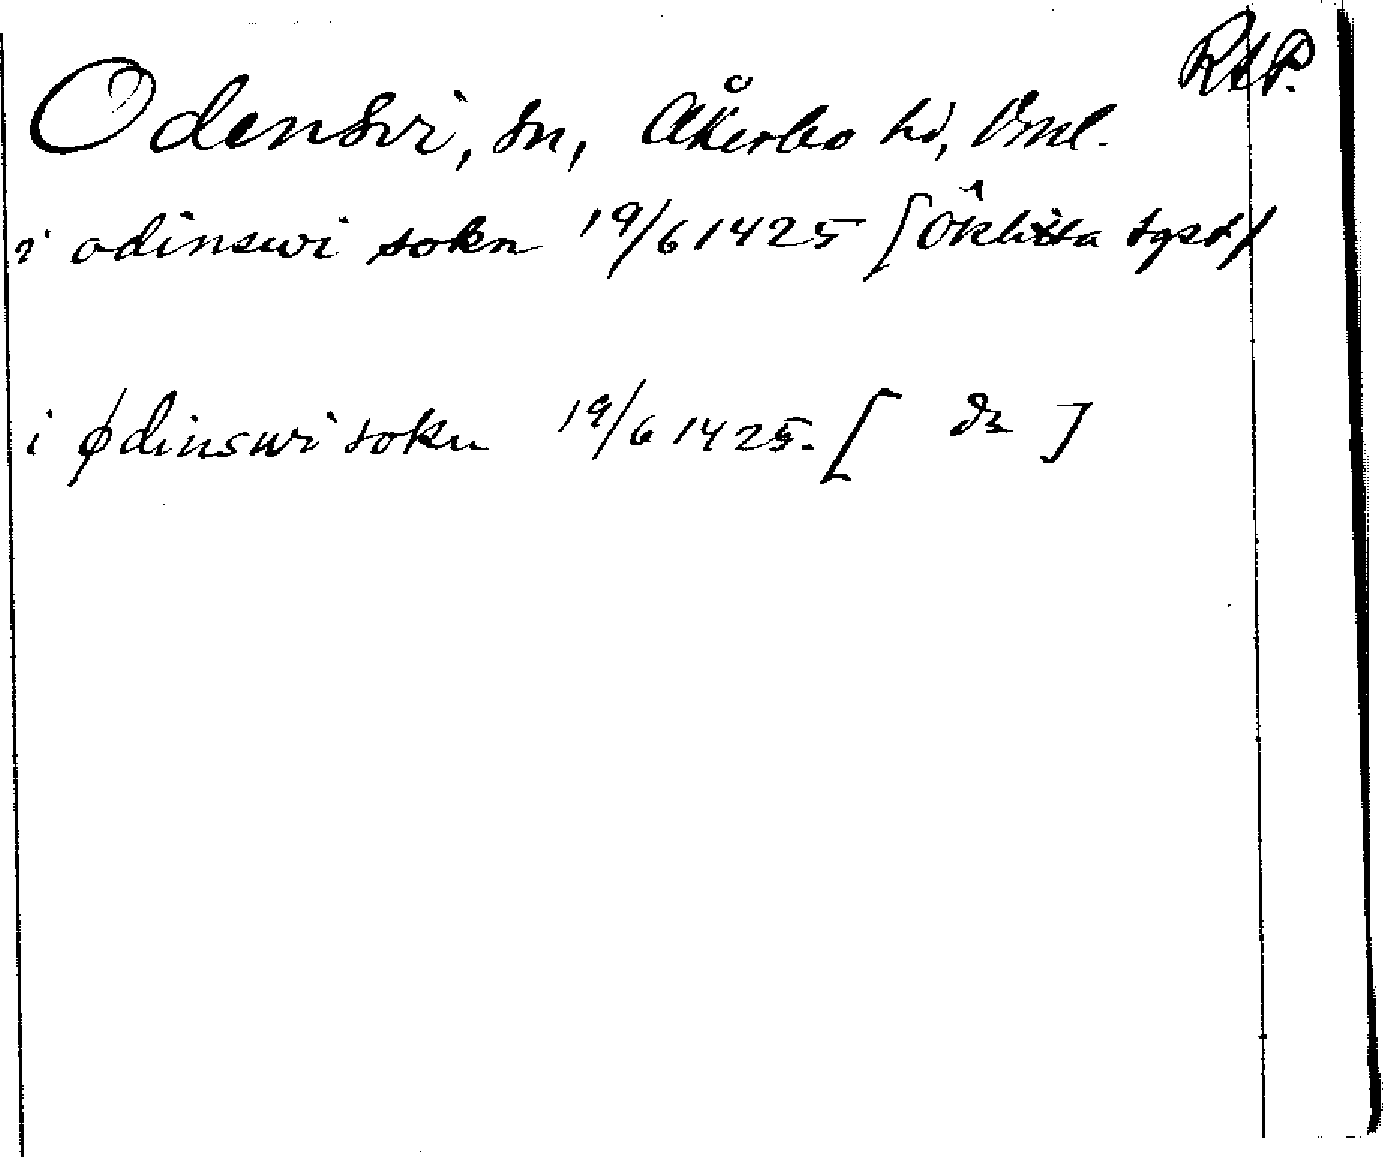 RAP.
Odensvi, sn, Åkerbo hd, Vml.
i odinswi sokn 19/6 1425
i ødinswi sokn 19/6 1425. [ do ]